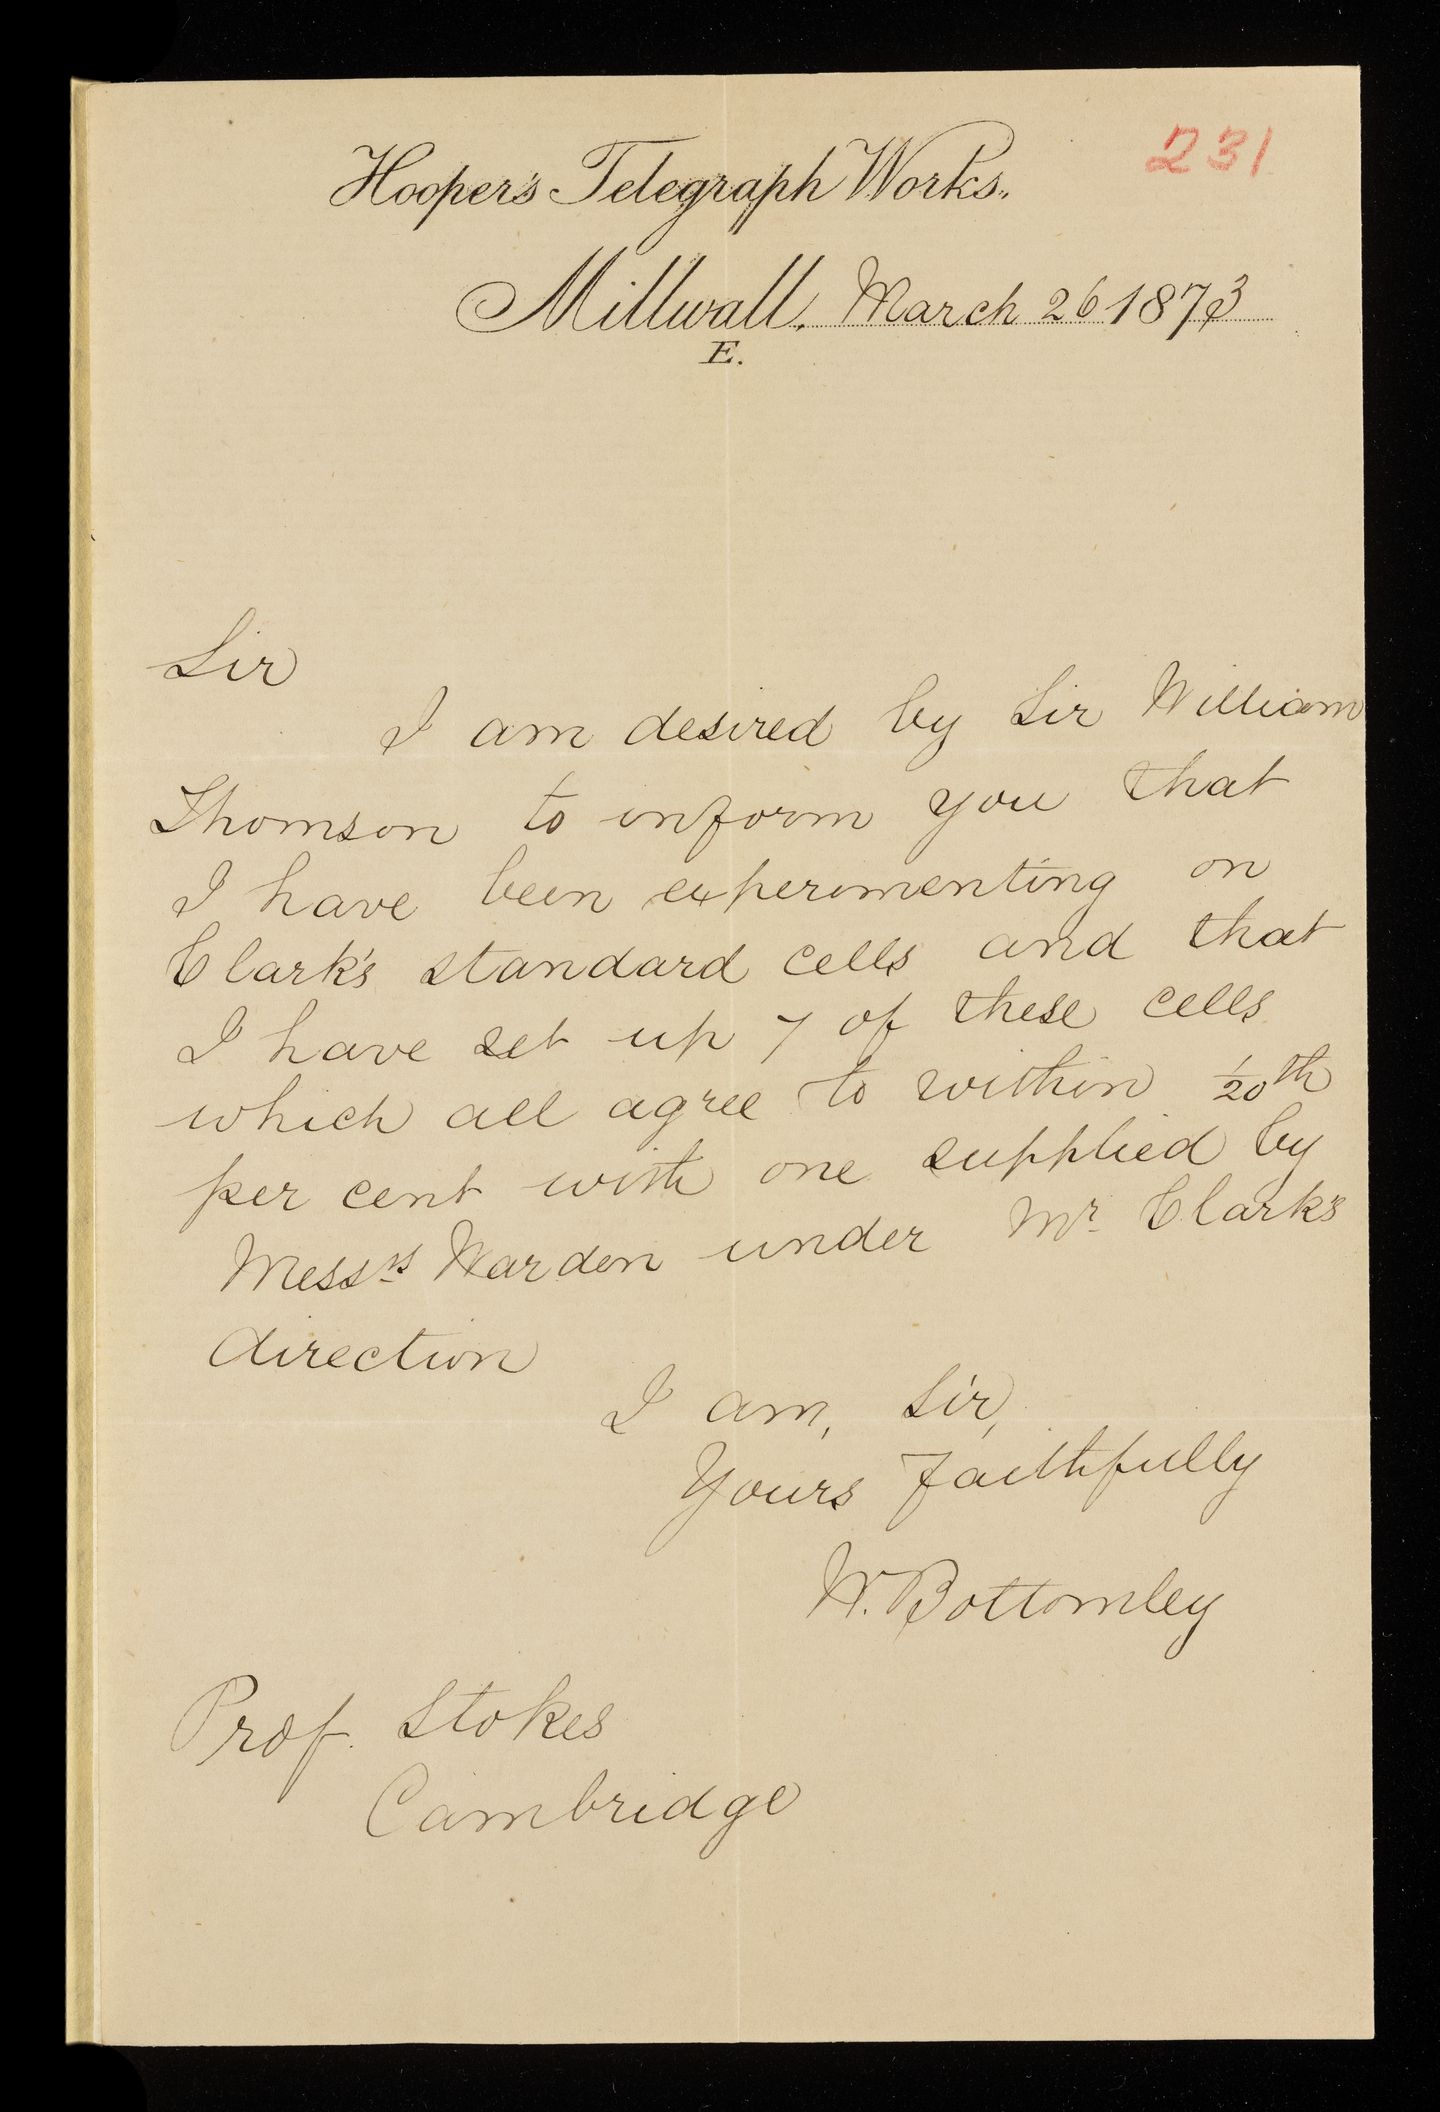 231
Hooper's Telegraph Works.
Millwall. March 26 1873
E.
Sir
I am desired by Sir William
Thomson to inform you that
I have been experimenting on
Clark's standard cells and that
I have set up 7 of these cells
which all agree to within 1/20th
per cent with one supplied by
Messrs Warden under Mr. Clark's
direction
I am, Sir,
Yours faithfully
W. Bottomley
Prof. Stokes
Cambridge